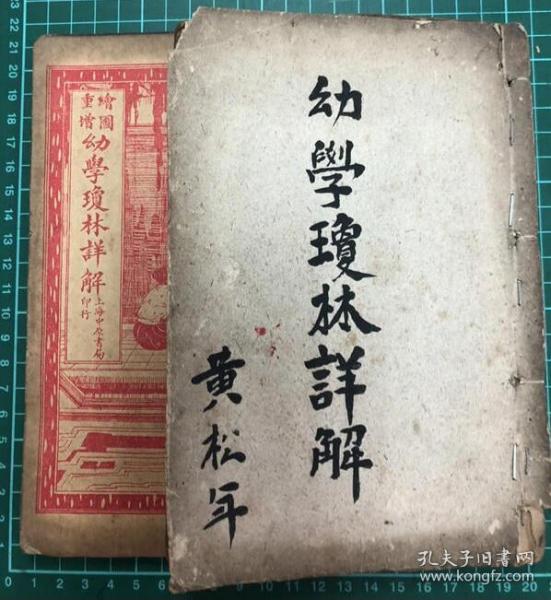 幼學瓊林詳解
黄松年
繪圖
重增
幼學瓊林詳解
上海中原書局
印行
孔夫子旧书网
www.kongfz.com